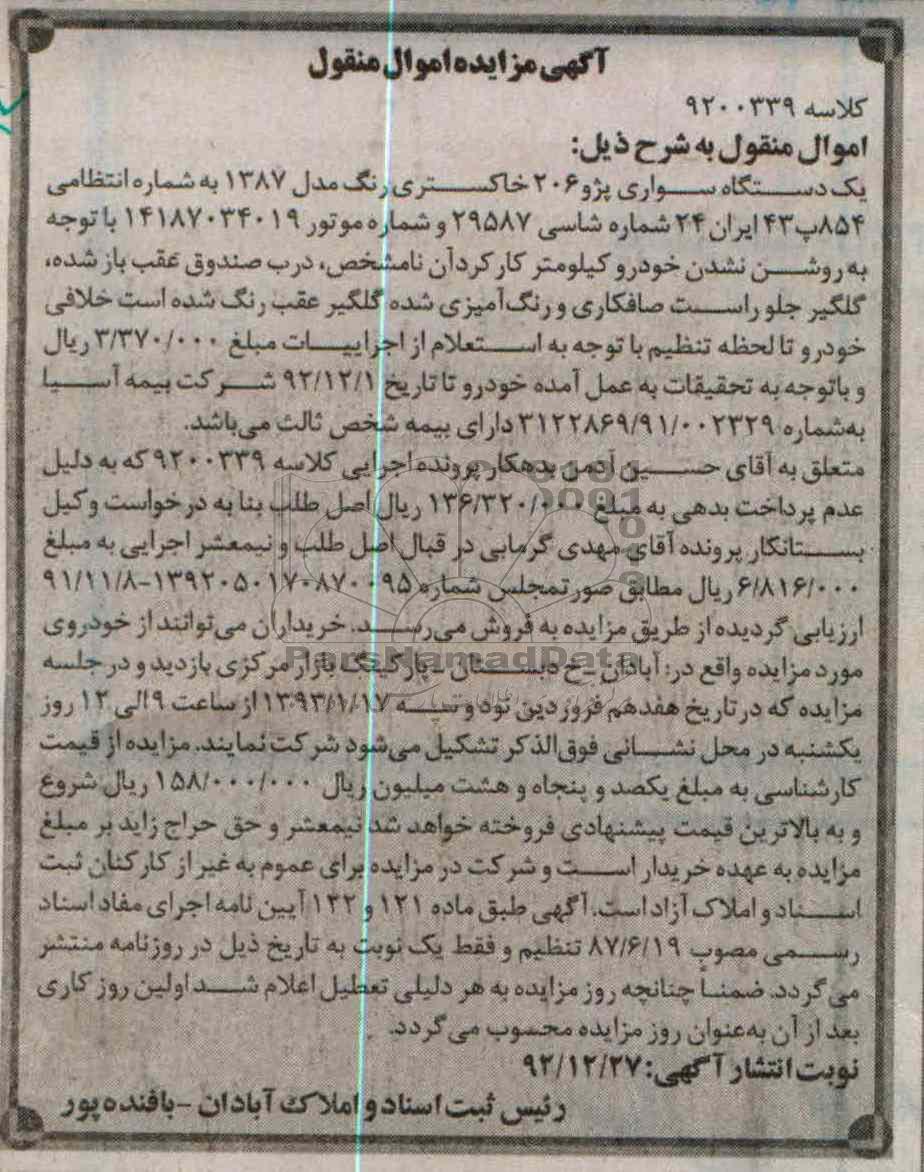 آگهی مزایده اموال منقول
کلاسه ۹۲۰۰۳۳۹
اموال منقول به شرح ذیل:
یک دستگاه سواری پژو ۲۰۶ خاکستری رنگ مدل ۱۳۸۷ به شماره انتظامی
۸۵۴پ۴۳ ایران ۲۴ شماره شاسی ۲۹۵۸۷ و شماره موتور ۱۴۱۸۷۰۳۴۰۱۹ با توجه
به روشن نشدن خودرو کیلومتر کارکردآن نامشخص، درب صندوق عقب باز شده،
گلگیر جلو راست صافکاری و رنگ‌آمیزی شده گلگیر عقب رنگ شده است خلافی
خودرو تا لحظه تنظیم با توجه به استعلام از اجراییات مبلغ ۳/۳۷۰/۰۰۰ ریال
و باتوجه به تحقیقات به عمل آمده خودرو تا تاریخ ۹۲/۱۲/۱ شرکت بیمه آسیا
به‌شماره ۳۱۲۲۸۶۹/۹۱/۰۰۲۳۲۹ دارای بیمه شخص ثالث می‌باشد.
متعلق به آقای حسین آدمن بدهکار پرونده اجرایی کلاسه ۹۲۰۰۳۳۹ که به دلیل
عدم پرداخت بدهی به مبلغ ۱۳۶/۳۲۰/۰۰۰ ریال اصل طلب بنا به درخواست وکیل
بستانکار پرونده آقای مهدی گرمابی در قبال اصل طلب و نیمعشر اجرایی به مبلغ
۶/۸۱۶/۰۰۰ ریال مطابق صورتمجلس شماره ۱۳۹۲۰۵۰۱۷۰۸۷۰۰۹۵-۹۱/۱۱/۸
ارزیابی گردیده از طریق مزایده به فروش می‌رسد. خریداران می‌توانند از خودروی
مورد مزایده واقع در: آبادان - خ دبستان - پارکینگ بازار مرکزی بازدید و در جلسه
مزایده که در تاریخ هفدهم فروردین نود و سه ۱۳۹۳/۱/۱۷ از ساعت ۹ الی ۱۲ روز
یکشنبه در محل نشانی فوق‌الذکر تشکیل می‌شود شرکت نمایند. مزایده از قیمت
کارشناسی به مبلغ یکصد و پنجاه و هشت میلیون ریال ۱۵۸/۰۰۰/۰۰۰ ریال شروع
و به بالاترین قیمت پیشنهادی فروخته خواهد شد نیمعشر و حق حراج زاید بر مبلغ
مزایده به عهده خریدار است و شرکت در مزایده برای عموم به غیر از کارکنان ثبت
اسناد و املاک آزاد است. آگهی طبق ماده ۱۲۱ و ۱۲۲ آیین نامه اجرای مفاد اسناد
رسمی مصوب ۸۷/۶/۱۹ تنظیم و فقط یک نوبت به تاریخ ذیل در روزنامه منتشر
می گردد. ضمنا چنانچه روز مزایده به هر دلیلی تعطیل اعلام شد اولین روز کاری
بعد از آن به‌عنوان روز مزایده محسوب می گردد.
نوبت انتشار آگهی: ۹۲/۱۲/۲۷
رئیس ثبت اسناد و املاک آبادان - بافنده پور
ParsNamadData